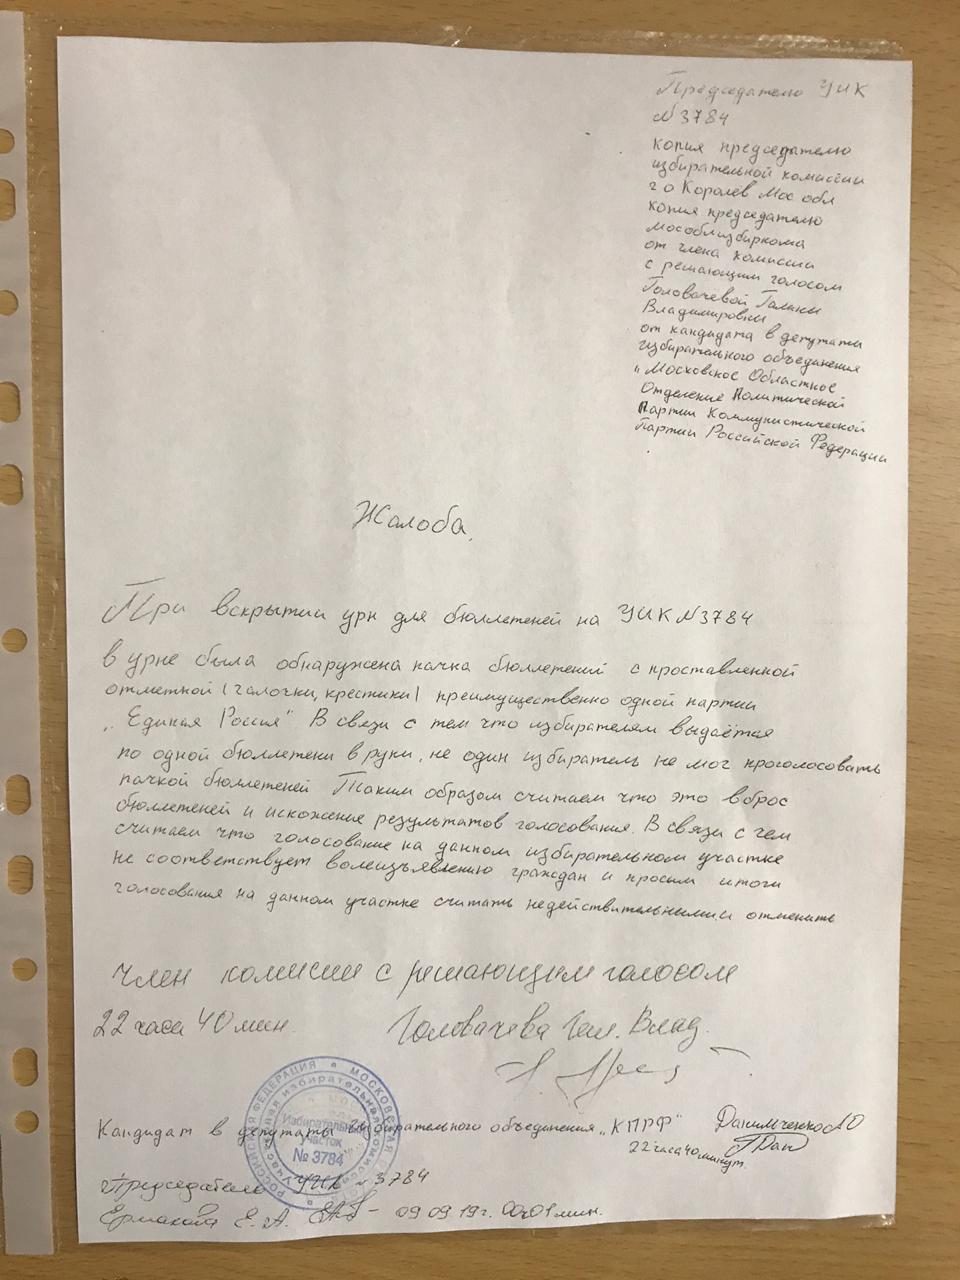 Председателю УИК
№3784
копия председателю
избирательной комиссии
г о Королев Мос обл
копия председателю
мособлизбиркома
от члена комиссии
с решающим голосом
Головачевой Галины
Владимировны
от кандидата в депутаты
избирательного объединения
"Московское Областное
Отделение Политической
Партии Коммунистической
Партии Российской Федерации
Жалоба.
При вскрытии урн для бюллетеней на УИК №3784
в урне была обнаружена пачка бюллетений с проставленной
отметкой (галочки, крестики) преимущественно одной партии
„Единая Россия" В связи с тем что избирателям выдаётся
по одной бюллетени в руки, не один избиратель не мог проголосовать
пачкой бюллетеней Таким образом считаем что это вброс
бюллетеней и искожение результатов голосования. В связи с чем
считаем что голосование на данном избирательном участке
не соответствует волеизъявлению граждан и просим итоги
голосования на данном участке считать недействительными и отменить
Член комисии с решающим голосом
22 часа 40 мин. Головачева Гал. Влад.
РОССИЙСКАЯ ФЕДЕРАЦИЯ МОСКОВСКАЯ
Участковая избирательная комиссия
Избирательный
участок
№ 3784
Кандидат в депутаты избирательного объединения „КПРФ" Данильченко
22 часа 40 минут
Председатель УИК №3784
Ермакова Е. А. 09 09 19г. 00 ч 01 мин.